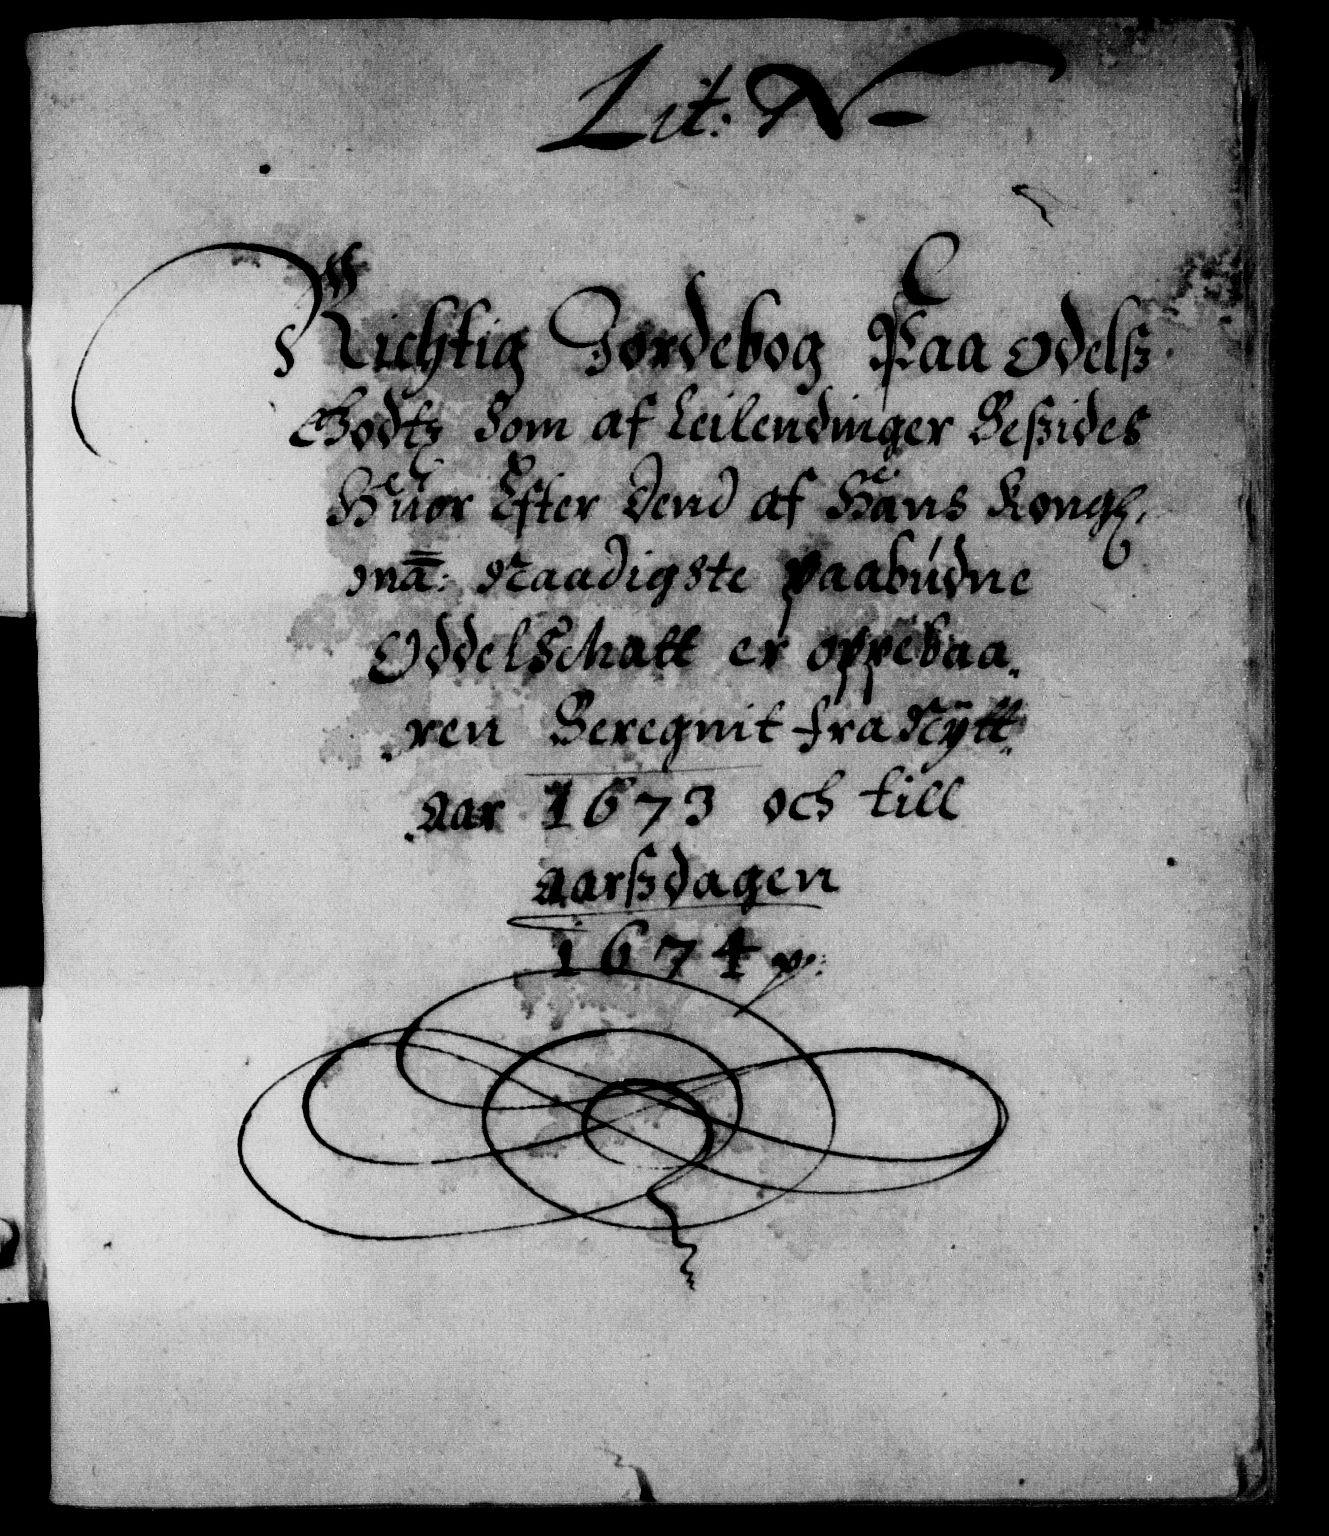 Lit: N
Richtig Jordebog Paa Odelß
Godtz Som af Leilendinger Beßides
Huor Efter Dend af Hans Kongl.
Mā: Naadigste paabúdne
Oddelschatt er oppebaa
ren Beregnit fra Nÿtt
aar 1673 och till
aarßdagen
1674